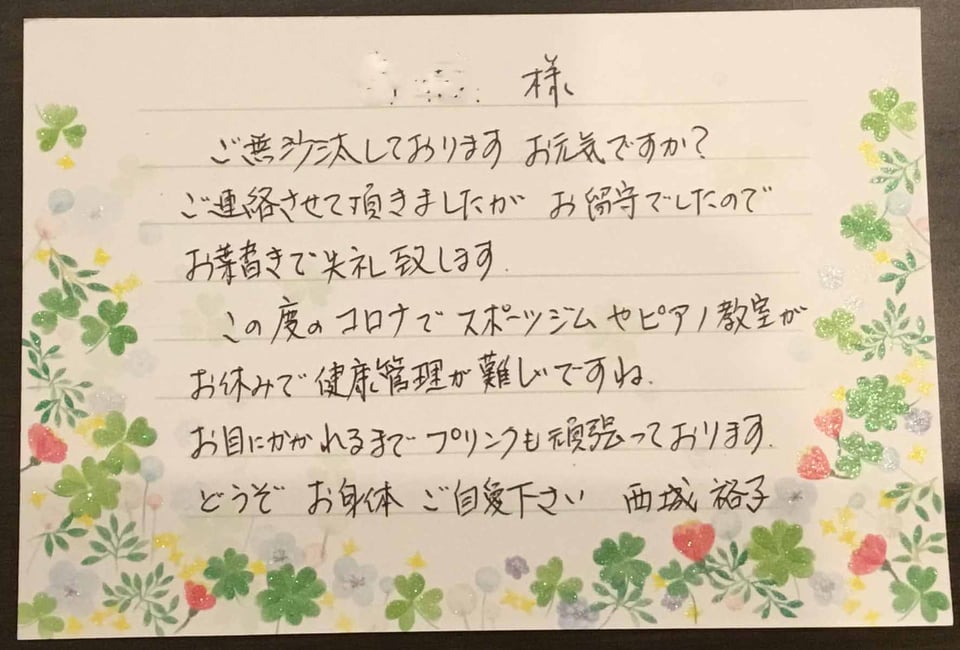 様
ご無沙汰しております お元気ですか?
ご連絡させて頂きましたが お留守でしたので
お葉書きで失礼致します.
この度のコロナで スポーツジムやピアノ教室が
お休みで健康管理が難しいですね.
お目にかかれるまで プリンクも頑張っております.
どうぞ お身体 ご自愛下さい 西城 裕子